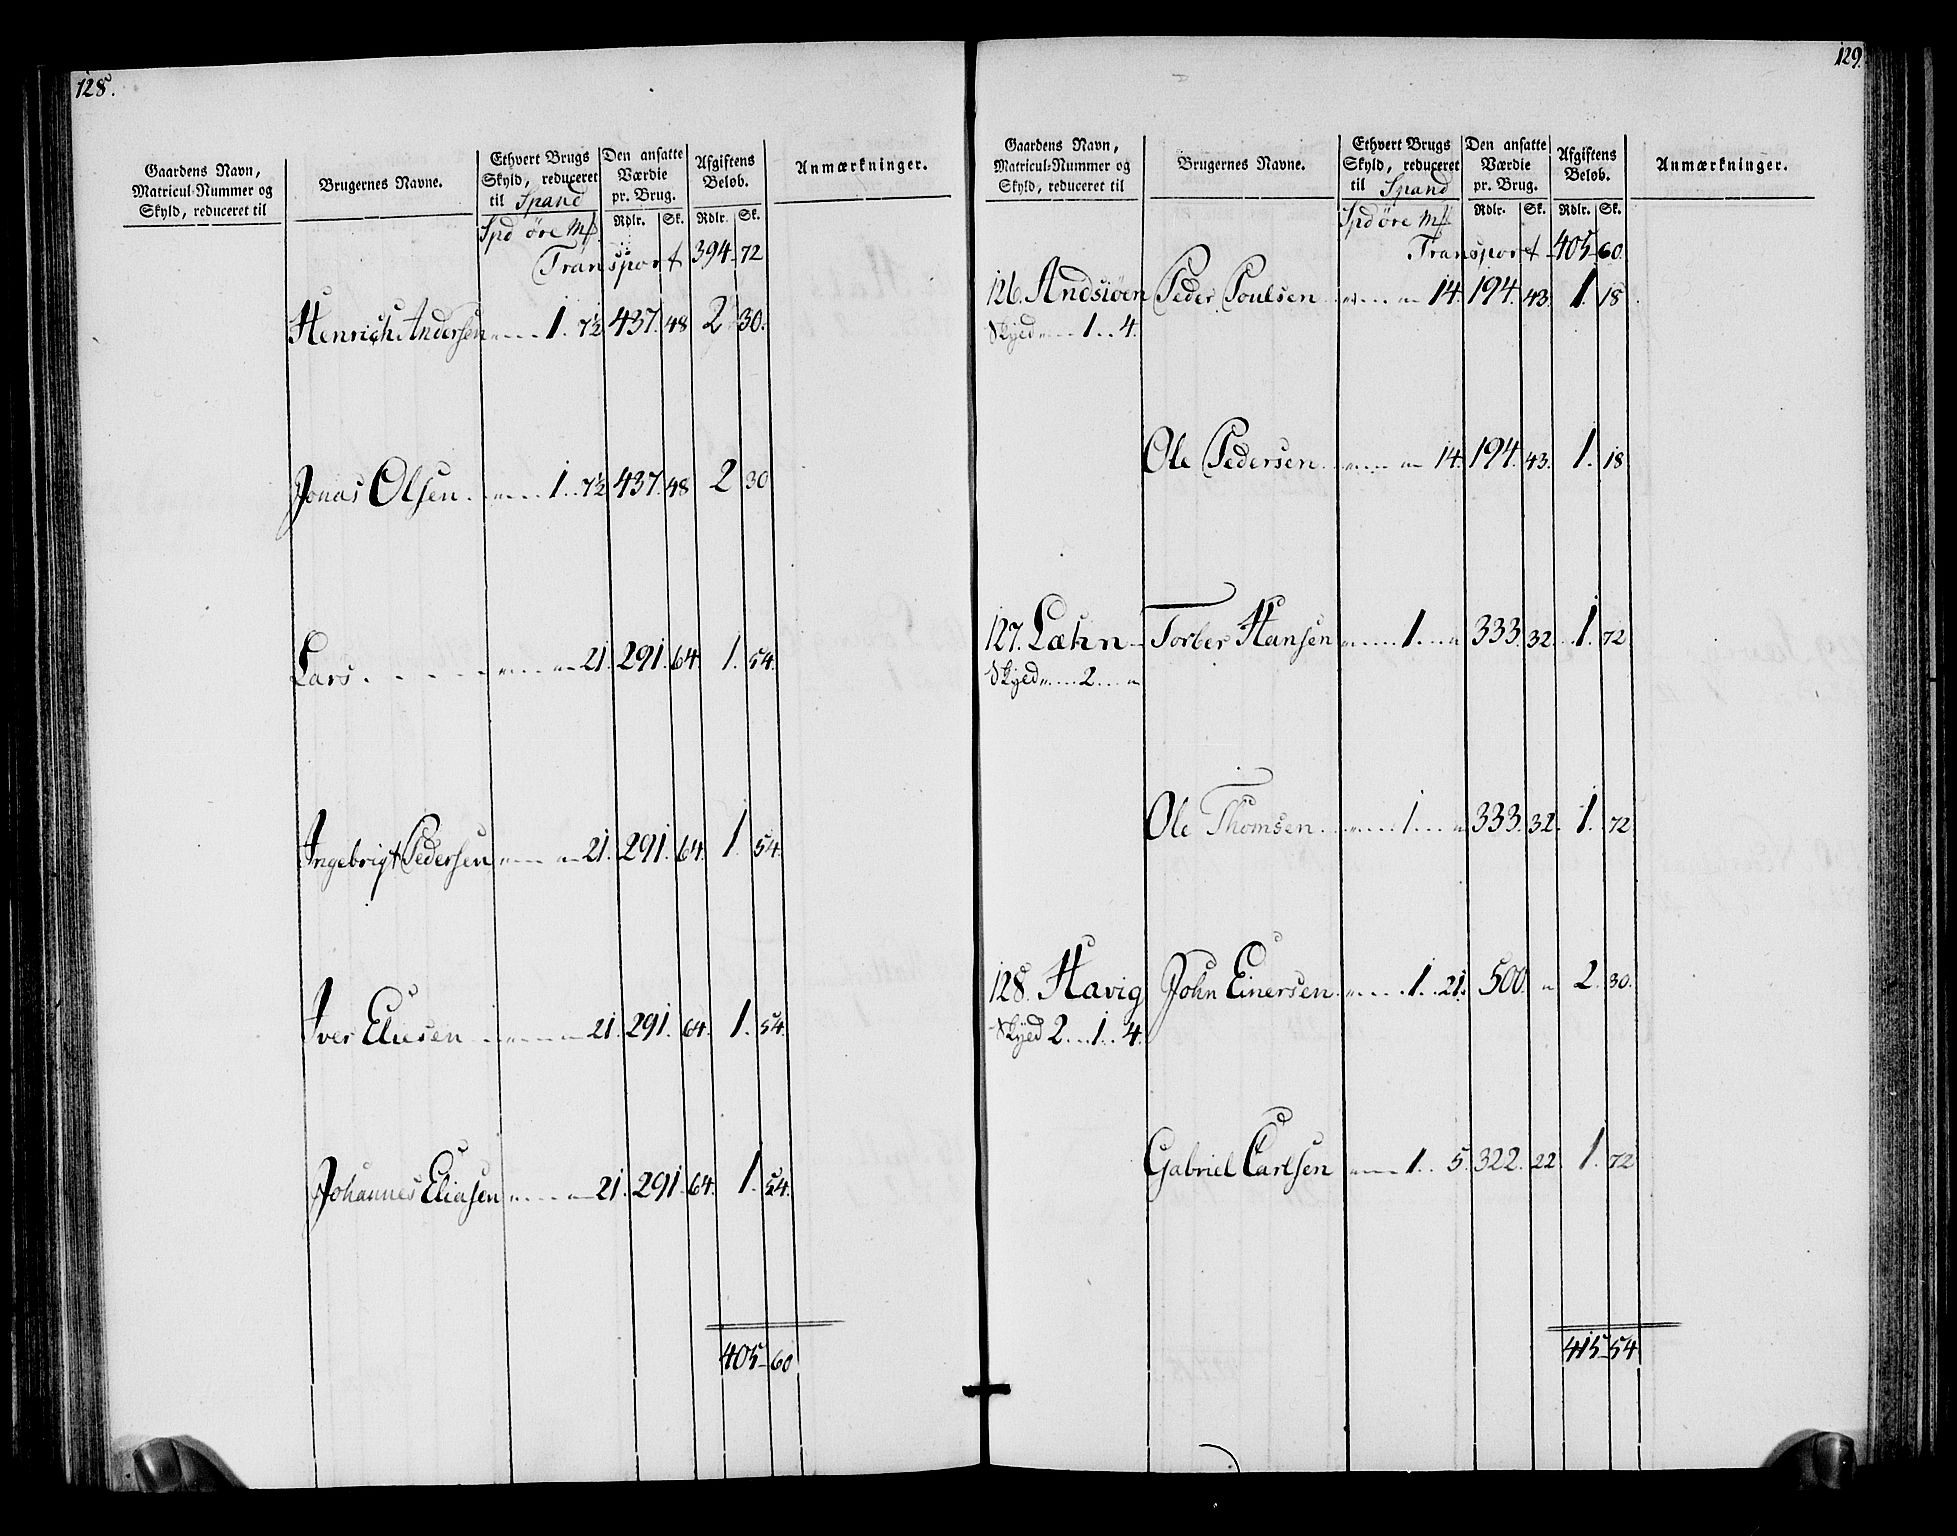 128.
Gaardens Navn,
Matricul-Nummer og
Skyld, reduceret til
Brugernes Navne.
Ethvert Brugs
Skyld, reduceret
til Spand
Den ansatte
Værdie
pr. Brug.
Afgiftens
Beløb.
Anmærkninger.
Spd øre Mk Rdlr. Sk. Rdlr. Sk.
Transport 394 72
Henrich Andersen 1. 7½ 437. 48 2 30.
Jonas Olsen 1. 7½ 437. 48 2 30
Lars 21. 291. 64 1. 54.
Ingebrigt Pedersen 21. 291. 64. 1. 54.
Iver Eliesen 21. 291. 64. 1. 54.
Johannes Eliasen 21. 291. 64. 1. 54.
405 60
129.
Gaardens Navn,
Matricul-Nummer og
Skyld, reduceret til
Brugernes Navne.
Ethvert Brugs
Skyld, reduceret
til Spand
Den ansatte
Værdie
pr. Brug.
Afgiftens
Beløb.
Anmærkninger.
Spd øre Mk Rdlr. Sk. Rdlr. Sk.
Transport 405 60.
126. Andsiøen Peder Poulsen 14. 194. 43. 1. 18.
Skyed 1 4.
Ole Pedersen 14. 194. 43. 1. 18
127. Læhn Torber Hansen 1 333. 32. 1. 72
Skyed 2
Ole Thomsen 1 333. 32. 1. 72
128. Havig John Einersen 1 21. 500. 2. 30.
Skyed 2 1 4.
Gabriel Carlsen 1 5. 322. 22. 1. 72
415 54